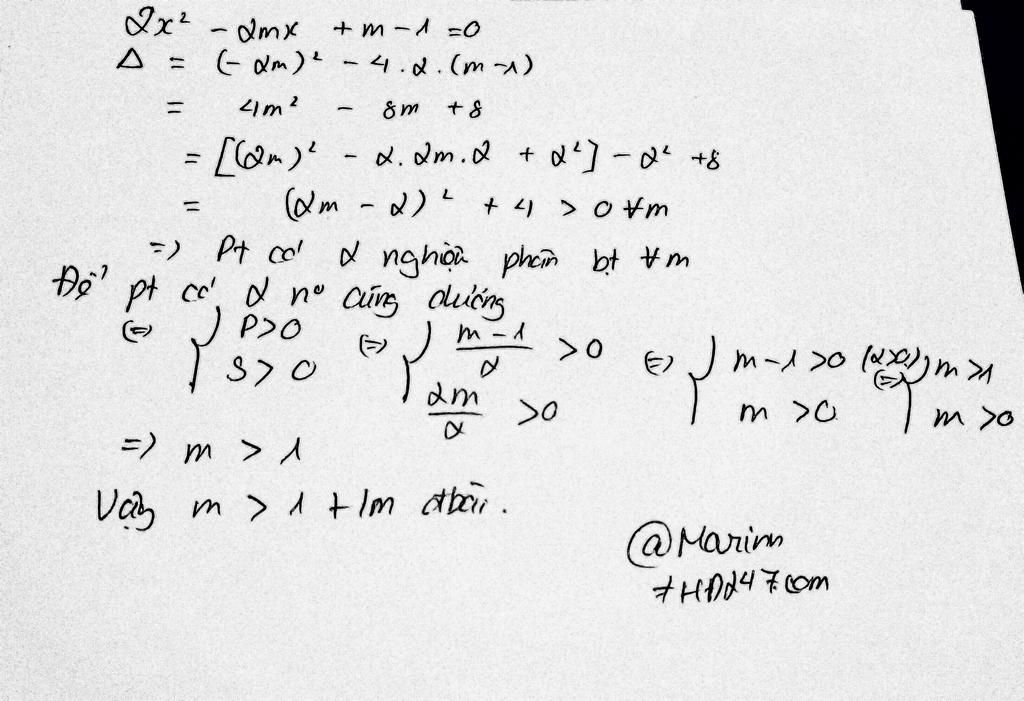 2x² - 2mx + m - 1 = 0
Δ = (-2m)² - 4.2.(m-1)
= 4m² - 8m + 8
= [(2m)² - 2.2m.2 + 2²] - 2² + 8
= (2m - 2)² + 4 > 0 ∀m
=> Pt có 2 nghiệm phân bt ∀m
Để pt có 2 no cùng dương
<=> { P>0 <=> { (m-1)/2 > 0 <=> { m-1>0 (2>0) <=> { m>1
S>0 2m/2 > 0 m>0 m>0
=> m > 1
Vậy m > 1 t/m đbài.
@Marinn
HD247.com